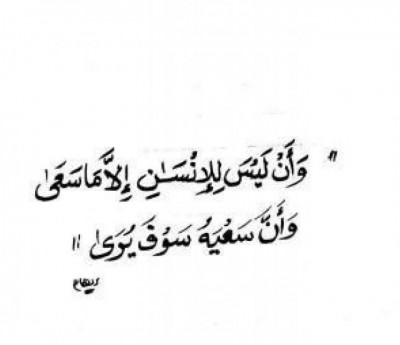 " وَأَنْ لَيْسَ لِلْإِنْسَٰنِ إِلَّا مَا سَعَىٰ
وَأَنَّ سَعْيَهُ سَوْفَ يُرَىٰ "